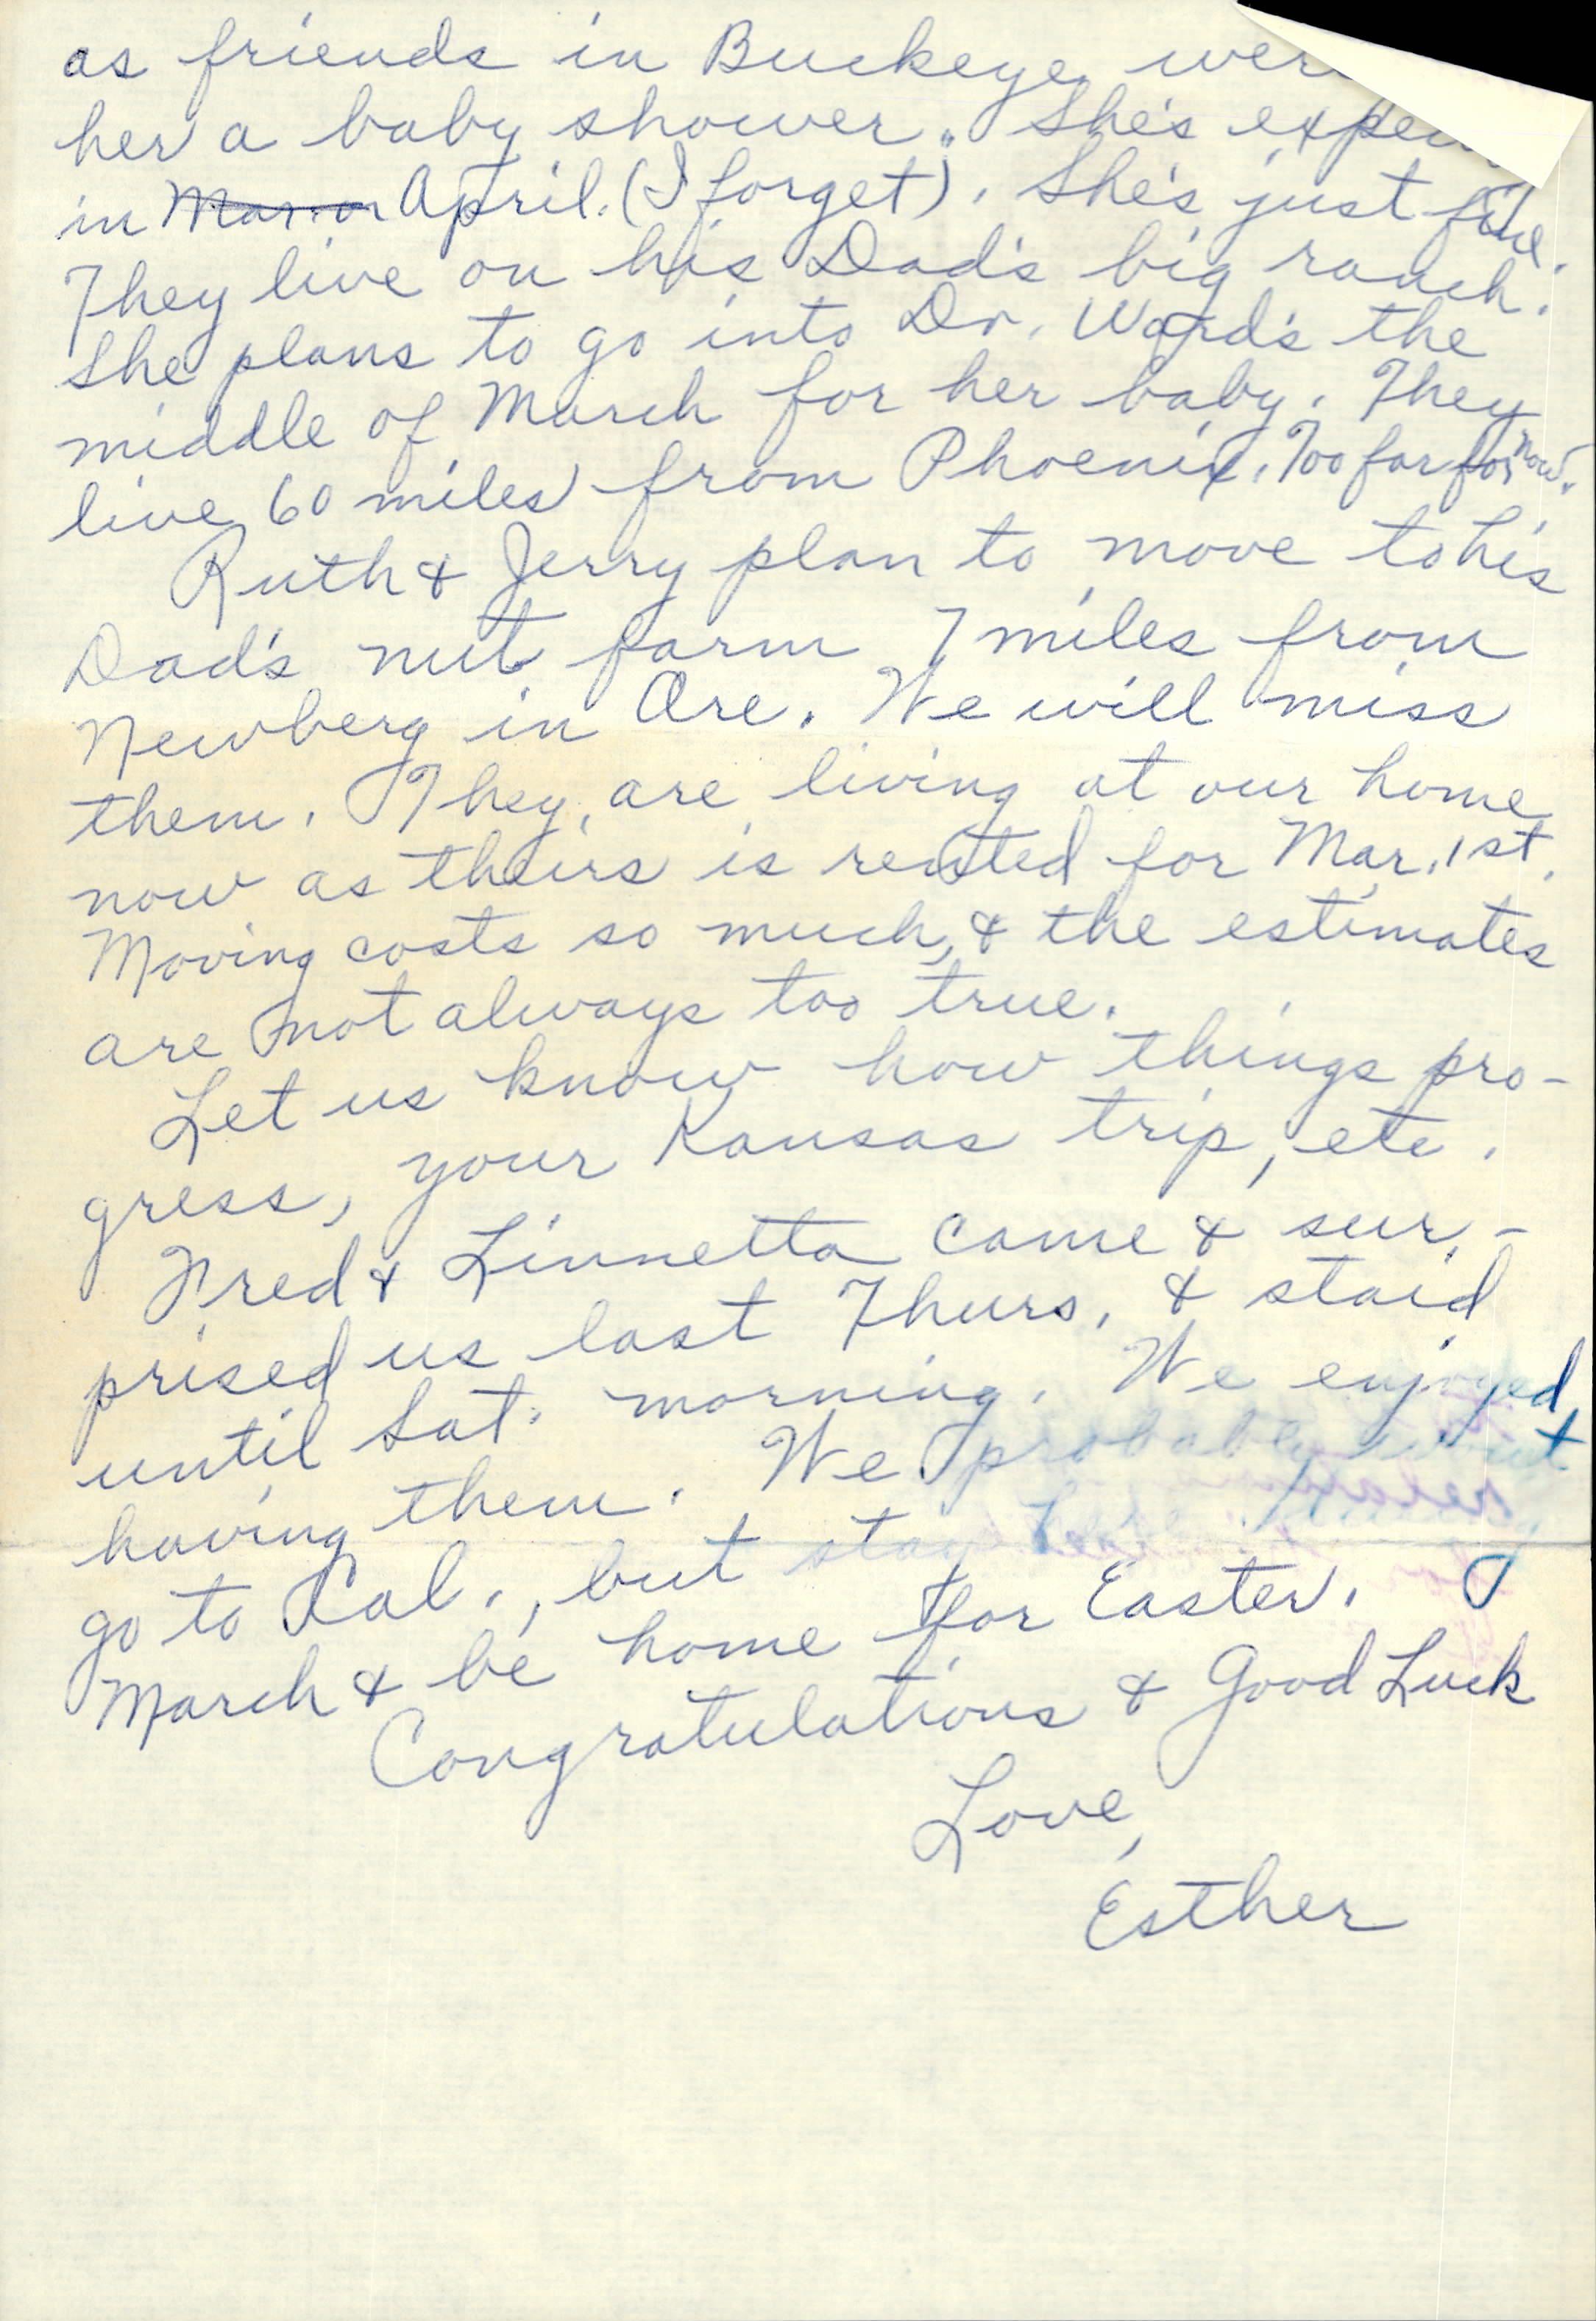 as friends in Buckeye were
her a baby shower. She's
in Mar. or April. (I forget). She's just fine.
They live on his Dad's big ranch.
She plans to go into Dr. Ward's the
middle of March for her baby. They
live 60 miles from Phoenix. Too far for now.
Ruth & Jerry plan to move to his
Dad's nut farm 7 miles from
Newberg in Ore. We will miss
them. They are living at our home
now as theirs is rented for Mar. 1st.
Moving costs so much, & the estimates
are not always too true.
Let us know how things pro-
gress, your Kansas trip, etc.
Fred & Linnetta came & sur-
prised us last Thurs. & staid
until Sat. morning. We enjoyed
having them. We probably won't
go to Cal., but stay here
March & be home for Easter.
Congratulations & Good Luck
Love,
Esther